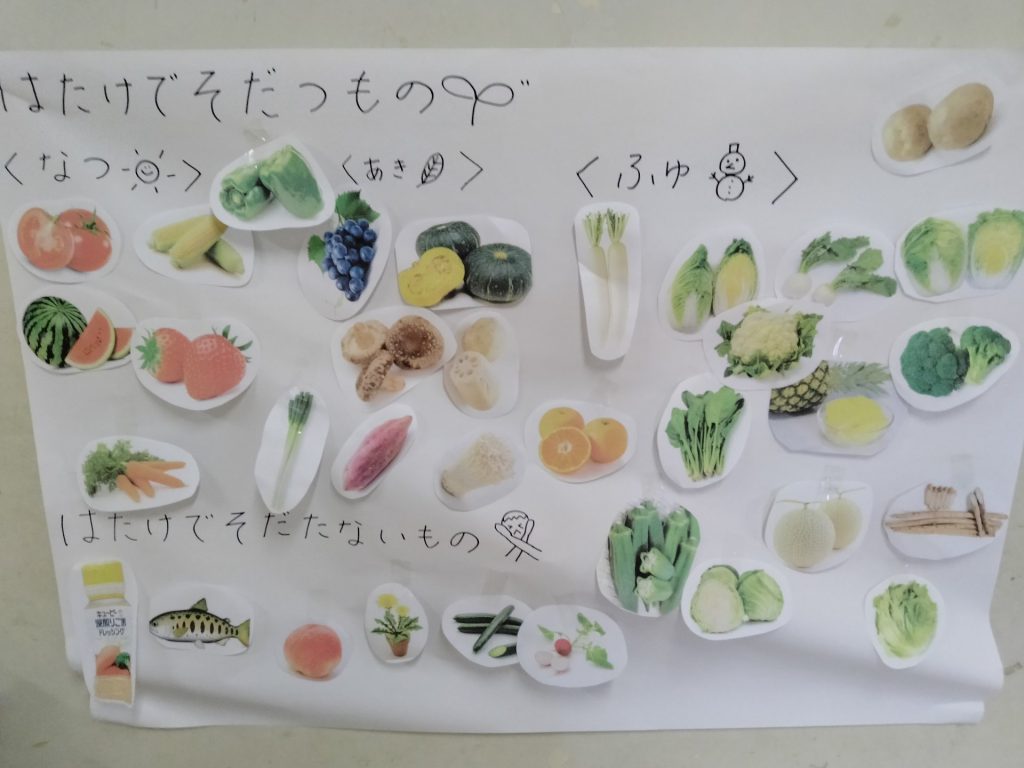 はたけでそだつもの
〈なつ〉
〈あき〉
〈ふゆ〉
はたけでそだたないもの
キユーピー
ドレッシング